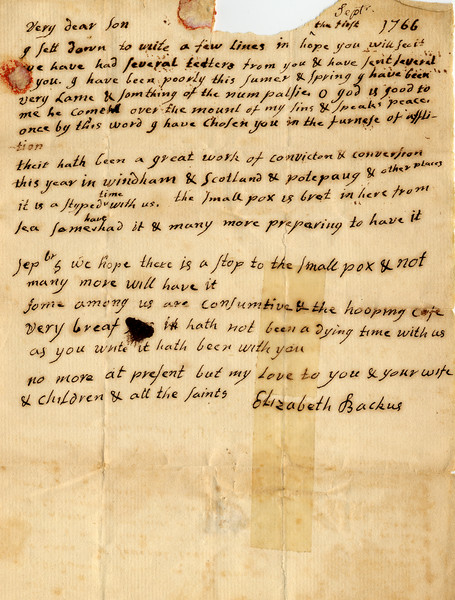 Very dear Son Septr the first 1766
I sett down to write a few lines in hope you will se it
we have had several letters from you & have sent several
you. I have been poorly this sumer & spring I have been
very Lame & somthing of the num palsie. O god is good to
me he cometh over the mount of my sins & speaks peace.
once by this word I have chosen you in the furnese of affli-
tion
their hath been a great work of conviction & conversion
this year in windham & Scotland & potepaug & other places
it is a styped time with us. the small pox is bret in here from
sea some have had it & many more preparing to have it
sepbr 5 we hope there is a stop to the small pox & not
many more will have it
some among us are consumtive & the hooping cofe
very breaf it hath not been a dying time with us
as you write it hath been with you
no more at present but my Love to you & your wife
& children & all the saints Elizabeth Backus